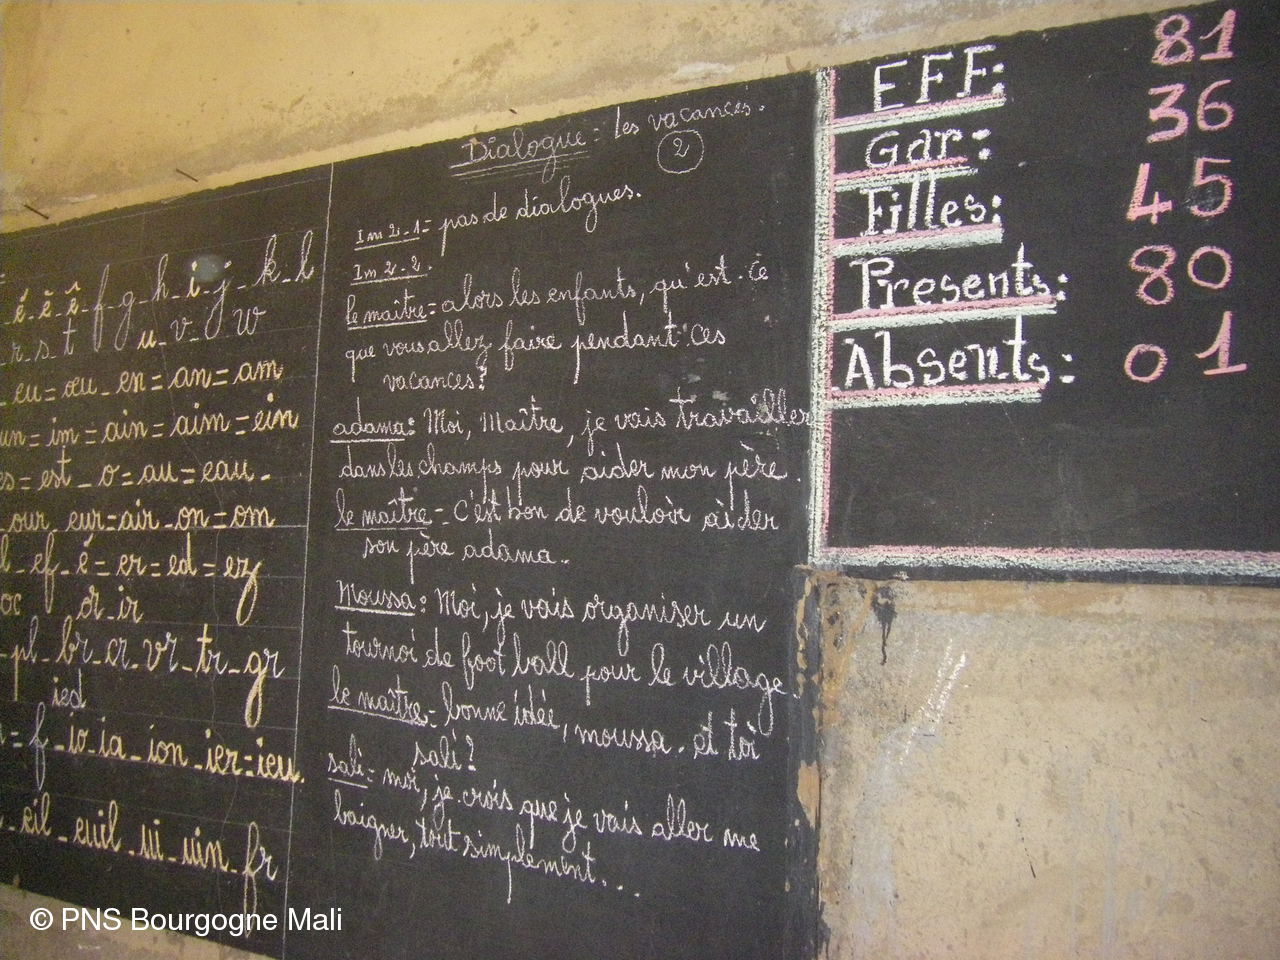 é_è_ê_f_g_h_i_j_k_l
r_s_t u_v_w
eu=œu_en=an=am
un=im=ain=aim=ein
es=est_o=au=eau_
our_eur=air_on=om
ef_é=er=ed=ez
oc or_ir
pl_br_cr_vr_tr_gr
ied
f_io_ia_ion_ier=ieu.
eil_euil_ui_uin_fr
Dialogue: les vacances.
2
Im 2_1= pas de dialogues.
Im 2-2.
le maître= alors les enfants, qu'est-ce
que vous allez faire pendant ces
vacances?
adama: Moi, Maître, je vais travailler
dans les champs pour aider mon père.
le maître= c'est bon de vouloir aider
son père adama.
Moussa: Moi, je vais organiser un
tournoi de foot ball pour le village.
le maître= bonne idée, moussa. et toi
sali?
sali= moi, je crois que je vais aller me
baigner, tout simplement...
EFF: 81
Gar: 36
Filles: 45
Presents: 80
Absents: 01
© PNS Bourgogne Mali